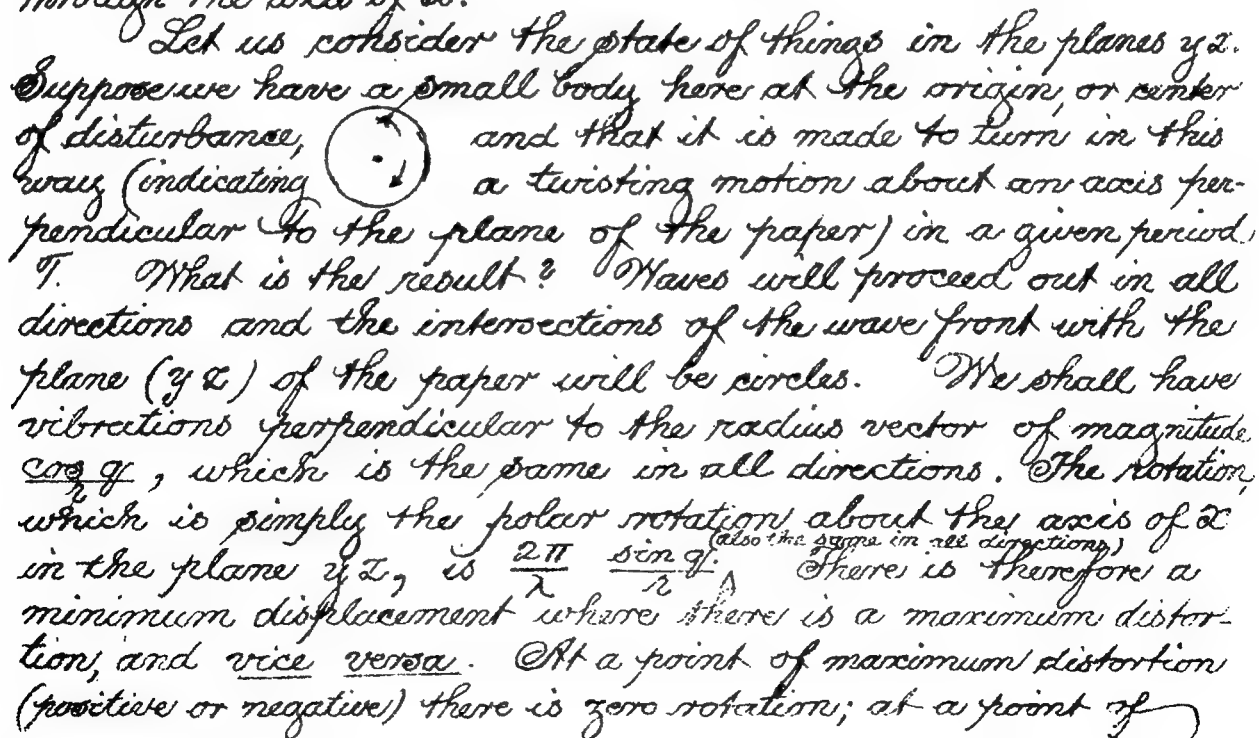 through the axis of x.
Let us consider the state of things in the planes yz.
Suppose we have a small body here at the origin, or center
of disturbance, and that it is made to turn in this
way (indicating a twisting motion about an axis per-
pendicular to the plane of the paper) in a given period
T. What is the result? Waves will proceed out in all
directions and the intersections of the wave front with the
plane (yz) of the paper will be circles. We shall have
vibrations perpendicular to the radius vector of magnitude
cos q/r, which is the same in all directions. The rotation,
which is simply the polar rotation about the axis of x
in the plane yz, is 2π/λ sin q/r. (also the same in all directions) There is therefore a
minimum displacement where there is a maximum distor-
tion, and vice versa. At a point of maximum distortion
(positive or negative) there is zero rotation; at a point of